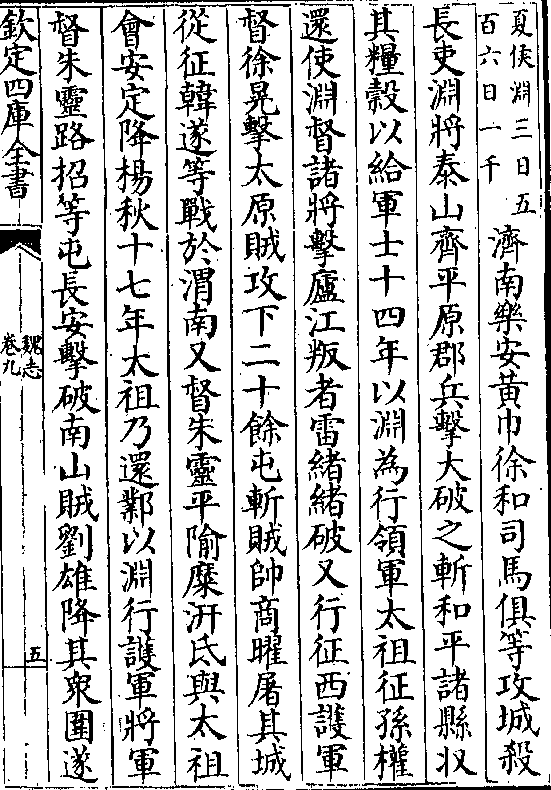 夏侯淵三日五
百六日一千
濟南樂安黃巾徐和司馬俱等攻城殺
長吏淵將泰山齊平原郡兵擊大破之斬和平諸縣收
其糧穀以給軍士十四年以淵為行領軍太祖征孫權
還使淵督諸將擊廬江叛者雷緒緒破又行征西護軍
督徐晃擊太原賊攻下二十餘屯斬賊帥商曜屠其城
從征韓遂等戰於渭南又督朱靈平隃糜汧氐與太祖
會安定降楊秋十七年太祖乃還鄴以淵行護軍將軍
督朱靈路招等屯長安擊破南山賊劉雄降其衆圍遂
欽定四庫全書
魏志
卷九
五